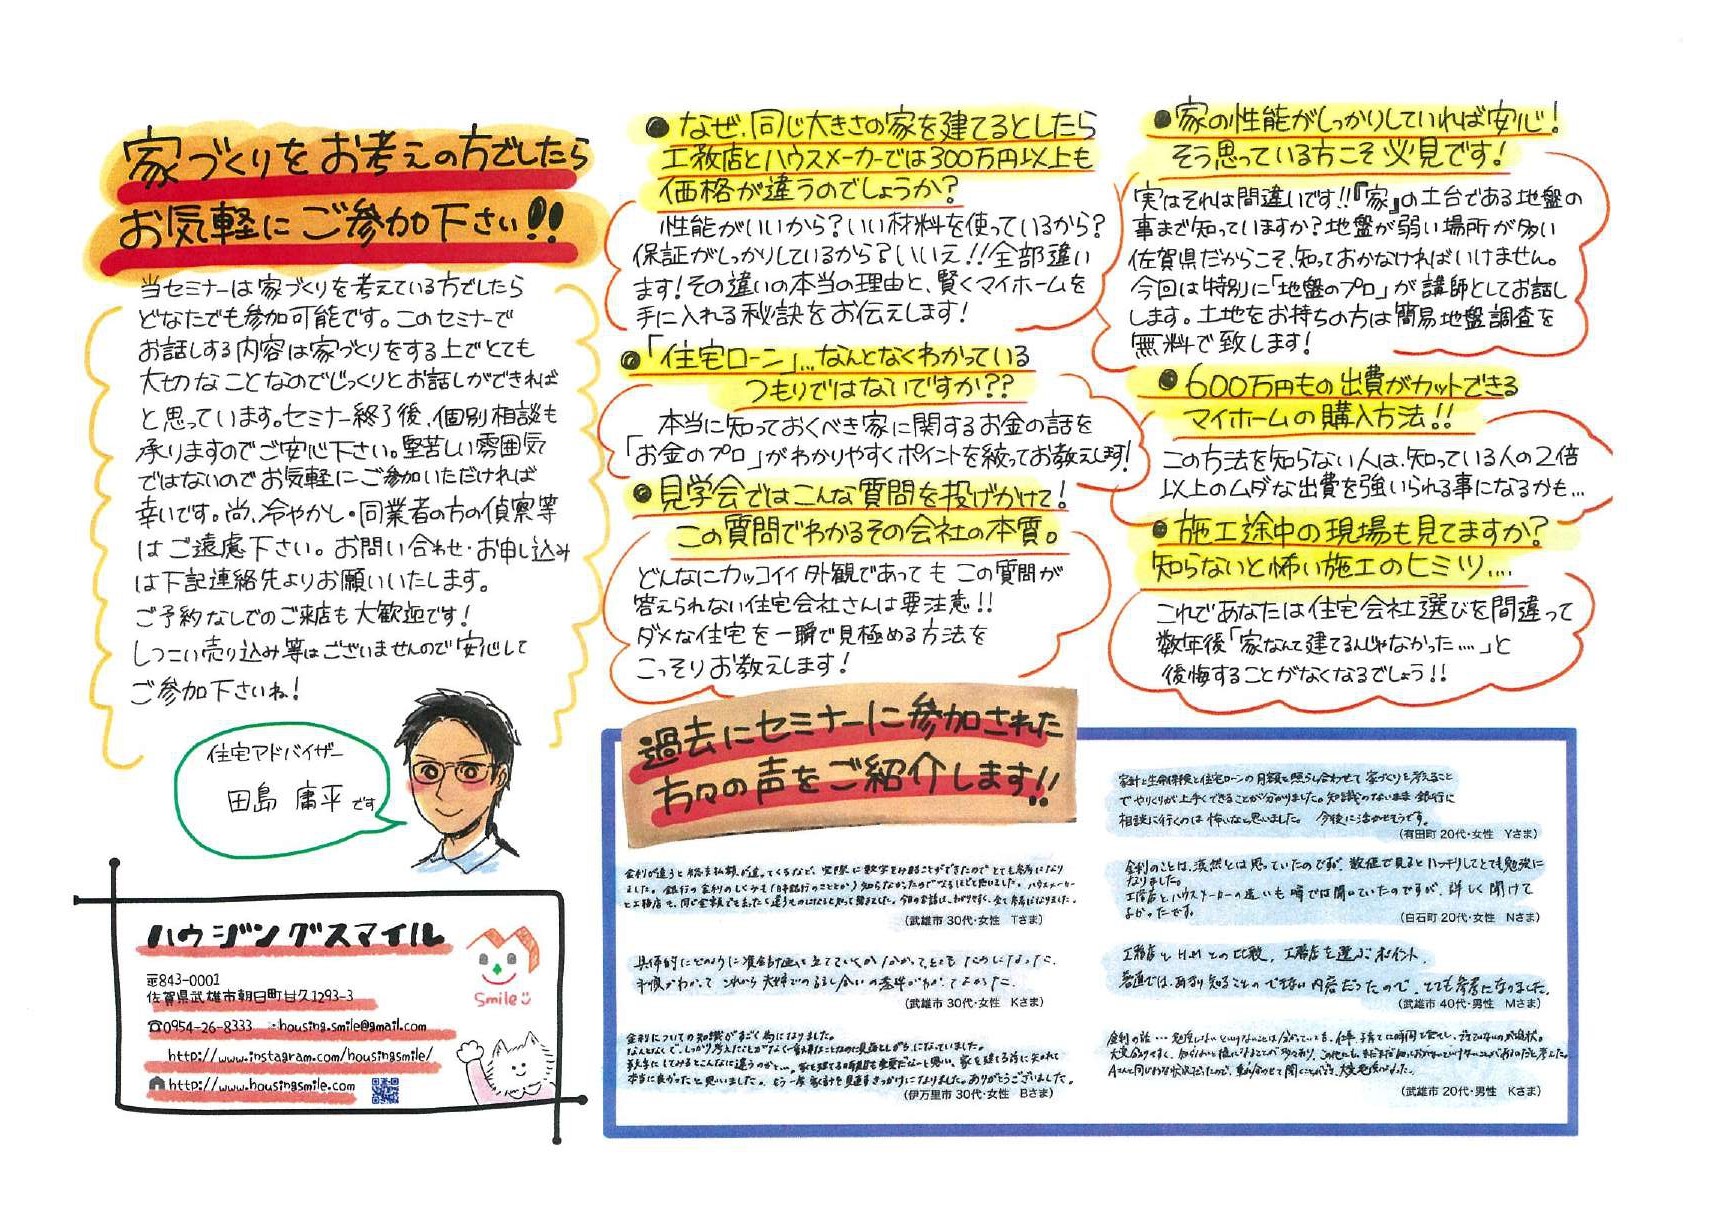 家づくりをお考えの方でしたら
お気軽にご参加下さい!!
当セミナーは家づくりを考えている方でしたら
どなたでも参加可能です。このセミナーで
お話しする内容は家づくりをする上でとても
大切なことなのでじっくりとお話しができれば
と思っています。セミナー終了後、個別相談も
承りますのでご安心下さい。堅苦しい雰囲気
ではないのでお気軽にご参加いただければ
幸いです。尚、冷やかし・同業者の方の偵察等
はご遠慮下さい。お問い合わせ・お申し込み
は下記連絡先よりお願いいたします。
ご予約なしでのご来店も大歓迎です!
しつこい売り込み等はございませんので安心して
ご参加下さいね!
住宅アドバイザー
田島 庸平です
ハウジングスマイル
〒843-0001
佐賀県武雄市朝日町甘久1293-3
☎0954-26-8333 housing.smile@gmail.com
http://www.instagram.com/housingsmile/
http://www.housingsmile.com
smile
●なぜ、同じ大きさの家を建てるとしたら
工務店とハウスメーカーでは300万円以上も
価格が違うのでしょうか?
性能がいいから?いい材料を使っているから?
保証がしっかりしているから?いいえ!!全部違い
ます!その違いの本当の理由と、賢くマイホームを
手に入れる秘訣をお伝えします!
●「住宅ローン」…なんとなくわかっている
つもりではないですか??
本当に知っておくべき家に関するお金の話を
「お金のプロ」がわかりやすくポイントを絞ってお教えします!
●見学会ではこんな質問を投げかけて!
この質問でわかるその会社の本質。
どんなにカッコイイ外観であっても この質問が
答えられない住宅会社さんは要注意!!
ダメな住宅を一瞬で見極める方法を
こっそりお教えします!
●家の性能がしっかりしていれば安心!
そう思っている方こそ必見です!
実はそれは間違いです!!『家』の土台である地盤の
事まで知っていますか?地盤が弱い場所が多い
佐賀県だからこそ、知っておかなければいけません。
今回は特別に「地盤のプロ」が講師としてお話し
します。土地をお持ちの方は簡易地盤調査を
無料で致します!
●600万円もの出費がカットできる
マイホームの購入方法!!
この方法を知らない人は、知っている人の2倍
以上のムダな出費を強いられる事になるかも…
●施工途中の現場も見てますか?
知らないと怖い施工のヒミツ…
これであなたは住宅会社選びを間違って
数年後「家なんて建てるんじゃなかった…」と
後悔することがなくなるでしょう!!
過去にセミナーに参加された
方々の声をご紹介します!!
(武雄市 30代・女性 Tさま)
(武雄市 30代・女性 Kさま)
金利についての知識がすごく為になりました。
本当に良かったと思いました。もう一度家計を見直すきっかけになりました。ありがとうございました。
(伊万里市 30代・女性 Bさま)
家計と生命保険と住宅ローンの月額を照らし合わせて家づくりを考えること
でやりくりが上手くできることが分かりました。知識のないまま銀行に
相談に行くのは怖いなと思いました。 今後に活かせそうです。
(有田町 20代・女性 Yさま)
金利のことは、漠然とは思っていたのですが、数値で見るとハッキリしてとても勉強に
なりました。
工務店とハウスメーカーの違いも噂では聞いていたのですが、詳しく聞けて
よかったです。
(白石町 20代・女性 Nさま)
工務店とH.Mとの比較、工務店を選ぶポイント、
普通では、あまり知ることのできない内容だったので、とても参考になりました。
(武雄市 40代・男性 Mさま)
(武雄市 20代・男性 Kさま)